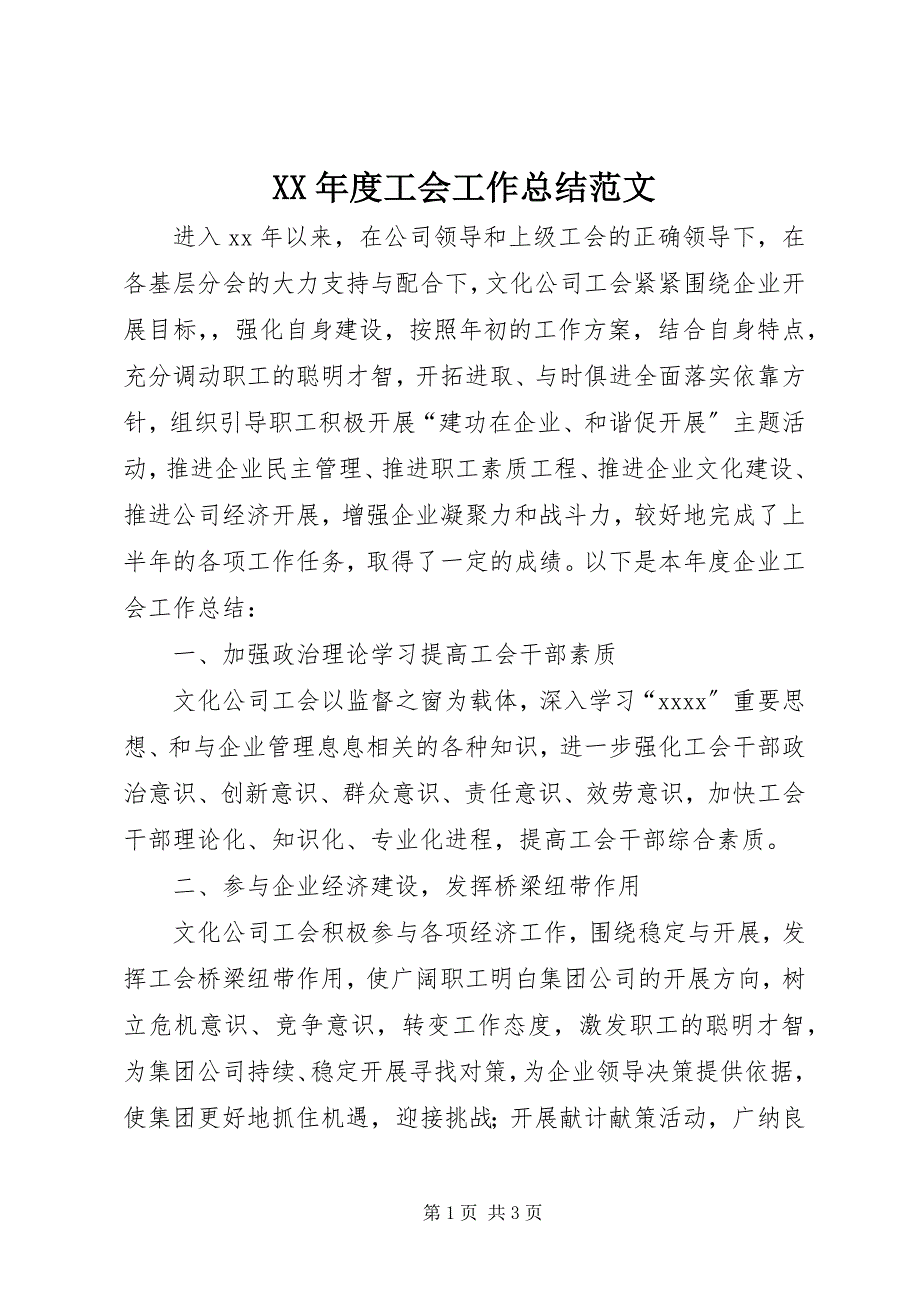 XX 年度工会工作总结范文
进入 xx 年以来，在公司领导和上级工会的正确领导下，在
各基层分会的大力支持与配合下，文化公司工会紧紧围绕企业开
展目标，，强化自身建设，按照年初的工作方案，结合自身特点，
充分调动职工的聪明才智，开拓进取、与时俱进全面落实依靠方
针，组织引导职工积极开展“建功在企业、和谐促开展〞主题活
动，推进企业民主管理、推进职工素质工程、推进企业文化建设、
推进公司经济开展，增强企业凝聚力和战斗力，较好地完成了上
半年的各项工作任务，取得了一定的成绩。以下是本年度企业工
会工作总结：
一、加强政治理论学习提高工会干部素质
文化公司工会以监督之窗为载体，深入学习“xxxx〞重要思
想、和与企业管理息息相关的各种知识，进一步强化工会干部政
治意识、创新意识、群众意识、责任意识、效劳意识，加快工会
干部理论化、知识化、专业化进程，提高工会干部综合素质。
二、参与企业经济建设，发挥桥梁纽带作用
文化公司工会积极参与各项经济工作，围绕稳定与开展，发
挥工会桥梁纽带作用，使广阔职工明白集团公司的开展方向，树
立危机意识、竞争意识，转变工作态度，激发职工的聪明才智，
为集团公司持续、稳定开展寻找对策，为企业领导决策提供依据，
使集团更好地抓住机遇，迎接挑战；开展献计献策活动，广纳良
第 1 页 共 3 页